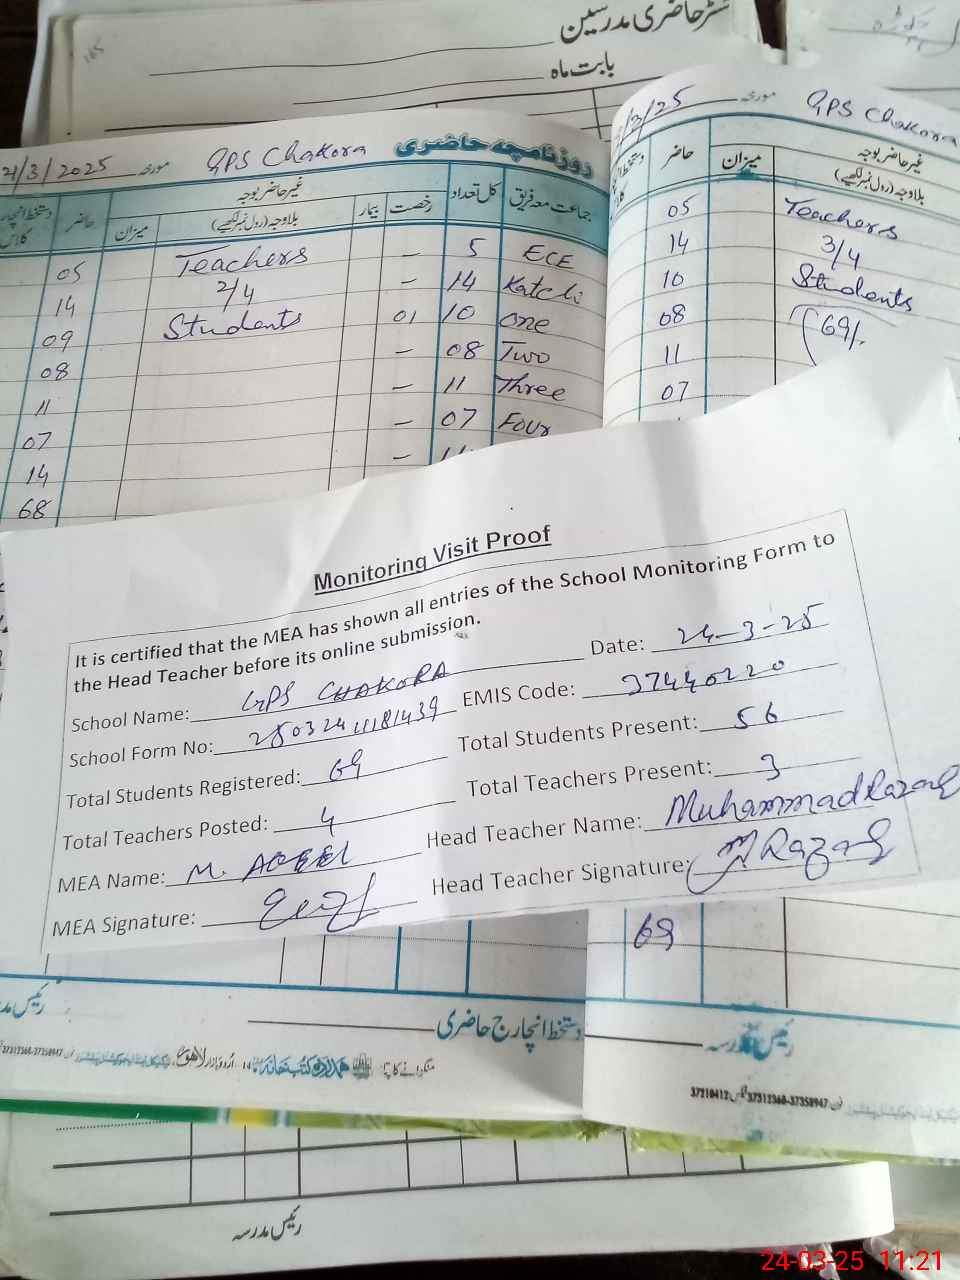 رجسٹر حاضری مدرسین
بابت ماہ
21/3/2025 مورخہ GPS Chakora روزنامچہ حاضری
جماعت معہ فریق
کل تعداد
غیر حاضر بوجہ
رخصت
بیمار
بلاوجہ (رول نمبر لکھیے)
میزان
حاضر
ECE 5 — Teachers 05
Katchi 14 — 2/4 14
One 10 01 Students 09
Two 08 — 08
Three 11 — 11
Four 07 — 07
— 14
68
/3/25 مورخہ GPS Chakora
غیر حاضر بوجہ
بلاوجہ (رول نمبر لکھیے)
میزان
حاضر
05 Teachers
14 3/4
10 Students
08 69/.
11
07
Monitoring Visit Proof
It is certified that the MEA has shown all entries of the School Monitoring Form to
the Head Teacher before its online submission.
Date: 24-3-25
School Name: GPS CHAKORA
EMIS Code: 37440220
School Form No: 250324111181439
Total Students Present: 56
Total Students Registered: 69
Total Teachers Present: 3
Total Teachers Posted: 4
Head Teacher Name: Muhammad Razaq
MEA Name: M. AQEEL
Head Teacher Signature: M Razaq
MEA Signature:
69
دستخط انچارج حاضری
رئیس مدرسہ
منگوانے کا پتہ: ہمدرد کتب خانہ اردو بازار لاہور
37210412 37312368-37358947
رئیس مدرسہ
24-03-25 11:21